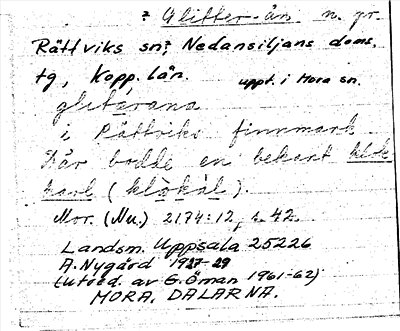 ? Glitter-ån n. pr.
Rättviks sn? Nedansiljans doms.
tg, Kopp. län. uppt. i Mora sn.
glitärana
i Rättviks finnmark
Här bodde en bekant klok
karl (klòkàl).
Mor. (Nu.) 2174:12, s. 42.
Landsm. Uppsala 25226
A. Nygård 1927-29
(utred. av G. Öman 1961-62)
MORA, DALARNA.